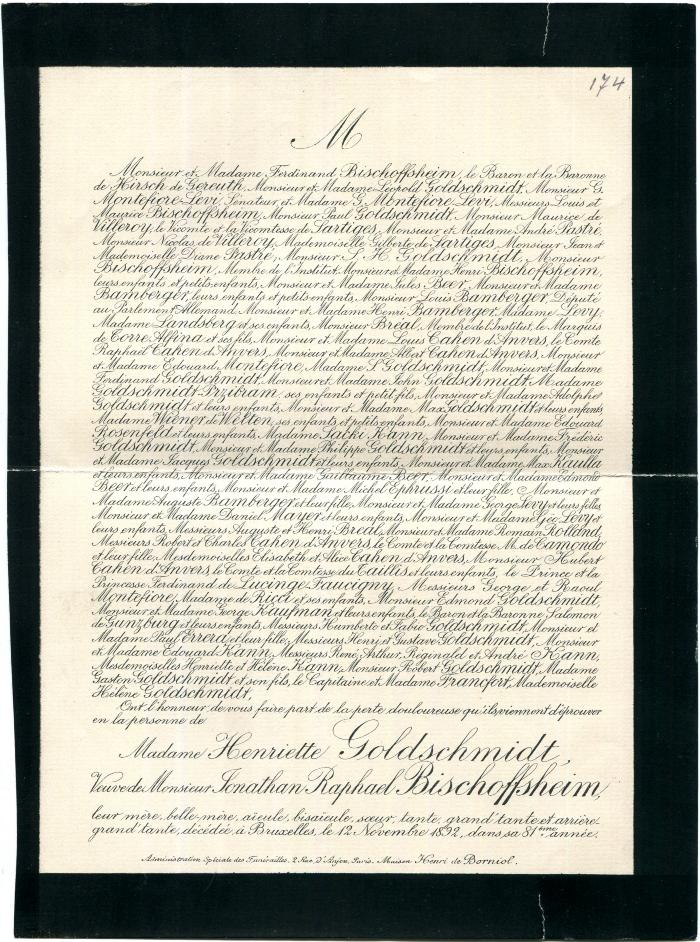 174
M
Monsieur et Madame Ferdinand Bischoffsheim, le Baron et la Baronne
de Hirsch de Gereuth, Monsieur et Madame Léopold Goldschmidt, Monsieur G.
Montefiore Levi, Sénateur, et Madame G. Montefiore Levi, Messieurs Louis et
Maurice Bischoffsheim, Monsieur Paul Goldschmidt, Monsieur Maurice de
Villeroy, le Vicomte et la Vicomtesse de Sartiges, Monsieur et Madame André Pastré,
Monsieur Nicolas de Villeroy, Mademoiselle Gilberte de Sartiges, Monsieur Jean et
Mademoiselle Diane Pastré, Monsieur S. H. Goldschmidt, Monsieur
Bischoffsheim, Membre de l'Institut, Monsieur et Madame Henri Bischoffsheim,
leurs enfants et petits enfants, Monsieur et Madame Jules Beer, Monsieur et Madame
Bamberger, leurs enfants et petits enfants, Monsieur Louis Bamberger, Député
au Parlement Allemand, Monsieur et Madame Henri Bamberger, Madame Levy,
Madame Landsberg et ses enfants, Monsieur Bréal, Membre de l'Institut, le Marquis
de Torre Alfina et ses fils, Monsieur et Madame Louis Cahen d'Anvers, le Comte
Raphaël Cahen d'Anvers, Monsieur et Madame Albert Cahen d'Anvers, Monsieur
et Madame Edouard Montefiore, Madame S. Goldschmidt, Monsieur et Madame
Ferdinand Goldschmidt, Monsieur et Madame John Goldschmidt, Madame
Goldschmidt-Przibram, ses enfants et petit fils, Monsieur et Madame Adolphe
Goldschmidt et leurs enfants, Monsieur et Madame Max Goldschmidt et leurs enfants,
Madame Wiener de Welten, ses enfants et petits enfants, Monsieur et Madame Edouard
Rosenfeld et leurs enfants, Madame Saëki Kann, Monsieur et Madame Frédéric
Goldschmidt, Monsieur et Madame Philippe Goldschmidt et leurs enfants, Monsieur
et Madame Jacques Goldschmidt et leurs enfants, Monsieur et Madame Max Kaulla
et leurs enfants, Monsieur et Madame Guillaume Beer, Monsieur et Madame Edmond
Beer et leurs enfants, Monsieur et Madame Michel Ephrussi et leur fille, Monsieur et
Madame Auguste Bamberger et leur fille, Monsieur et Madame George Levy et leurs filles,
Monsieur et Madame Daniel Mayer et leurs enfants, Monsieur et Madame Géo. Levy et
leurs enfants, Messieurs Auguste et Henri Bréal, Monsieur et Madame Romain Rolland,
Messieurs Robert et Charles Cahen d'Anvers, le Comte et la Comtesse M. de Camondo
et leur fille, Mesdemoiselles Elisabeth et Alice Cahen d'Anvers, Monsieur Hubert
Cahen d'Anvers, le Comte et la Comtesse du Taillis et leurs enfants, le Prince et la
Princesse Ferdinand de Lucinge Faucigny, Messieurs George et Raoul
Montefiore, Madame de Ricci et ses enfants, Monsieur Edmond Goldschmidt,
Monsieur et Madame George Kaufman et leurs enfants, le Baron et la Baronne Salomon
de Gunzburg et leurs enfants, Messieurs Humberto et Fabio Goldschmidt, Monsieur et
Madame Paul Errera et leur fille, Messieurs Henri et Gustave Goldschmidt, Monsieur
et Madame Edouard Kann, Messieurs René, Arthur, Reginald et André Kann,
Mesdemoiselles Henriette et Hélène Kann, Monsieur Robert Goldschmidt, Madame
Gaston Goldschmidt et son fils, le Capitaine et Madame Francfort, Mademoiselle
Hélène Goldschmidt,
Ont l'honneur de vous faire part de la perte douloureuse qu'ils viennent d'éprouver
en la personne de
Madame Henriette Goldschmidt,
Veuve de Monsieur Jonathan Raphaël Bischoffsheim,
leur mère, belle-mère, aïeule, bisaïeule, sœur, tante, grand'tante et arrière-
grand'tante, décédée à Bruxelles, le 12 Novembre 1892, dans sa 81ème année.
Administration Spéciale des Funérailles, 2 Rue d'Anjou, Paris. Maison Henri de Borniol.